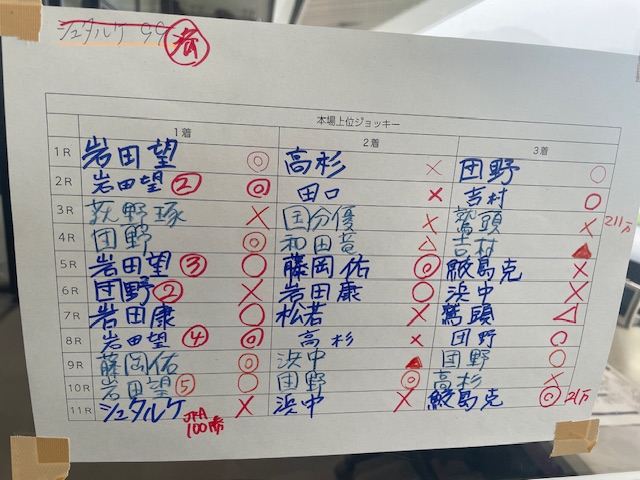 シュタルケ 99 済
本場上位ジョッキー
1着 2着 3着
1R 岩田望 ◎ 高杉 × 団野 ○
2R 岩田望② ◎ 田口 × 吉村 ○
3R 荻野琢 × 国分優 × 鷲頭 × 211万
4R 団野 ◎ 和田竜 △ 吉村 ▲
5R 岩田望③ ○ 藤岡佑 ◎ 鮫島克 ×
6R 団野② × 岩田康 ○ 浜中 ×
7R 岩田康 ○ 松若 × 鷲頭 △
8R 岩田望④ ◎ 高杉 × 団野 ○
9R 藤岡佑 ◎ 浜中 ▲ 団野 ○
10R 岩田望⑤ ○ 団野 ◎ 高杉 ×
11R シュタルケ × 浜中 × 鮫島克 ◎ 21万
JRA
100勝